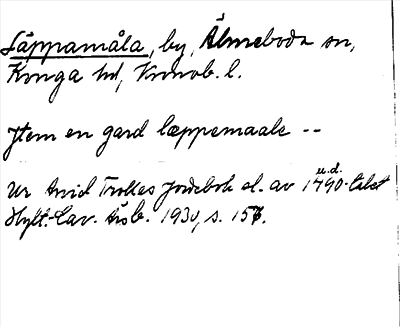 Läppamåla, by, Älmeboda sn,
Konga hd, Kronob. l.
Jtem en gard læppemaale --
u.d.
Ur Arvid Trolles Jordebok sl. av 1490-talet
Hylt.-Cav. Årsb. 1930, s. 157.